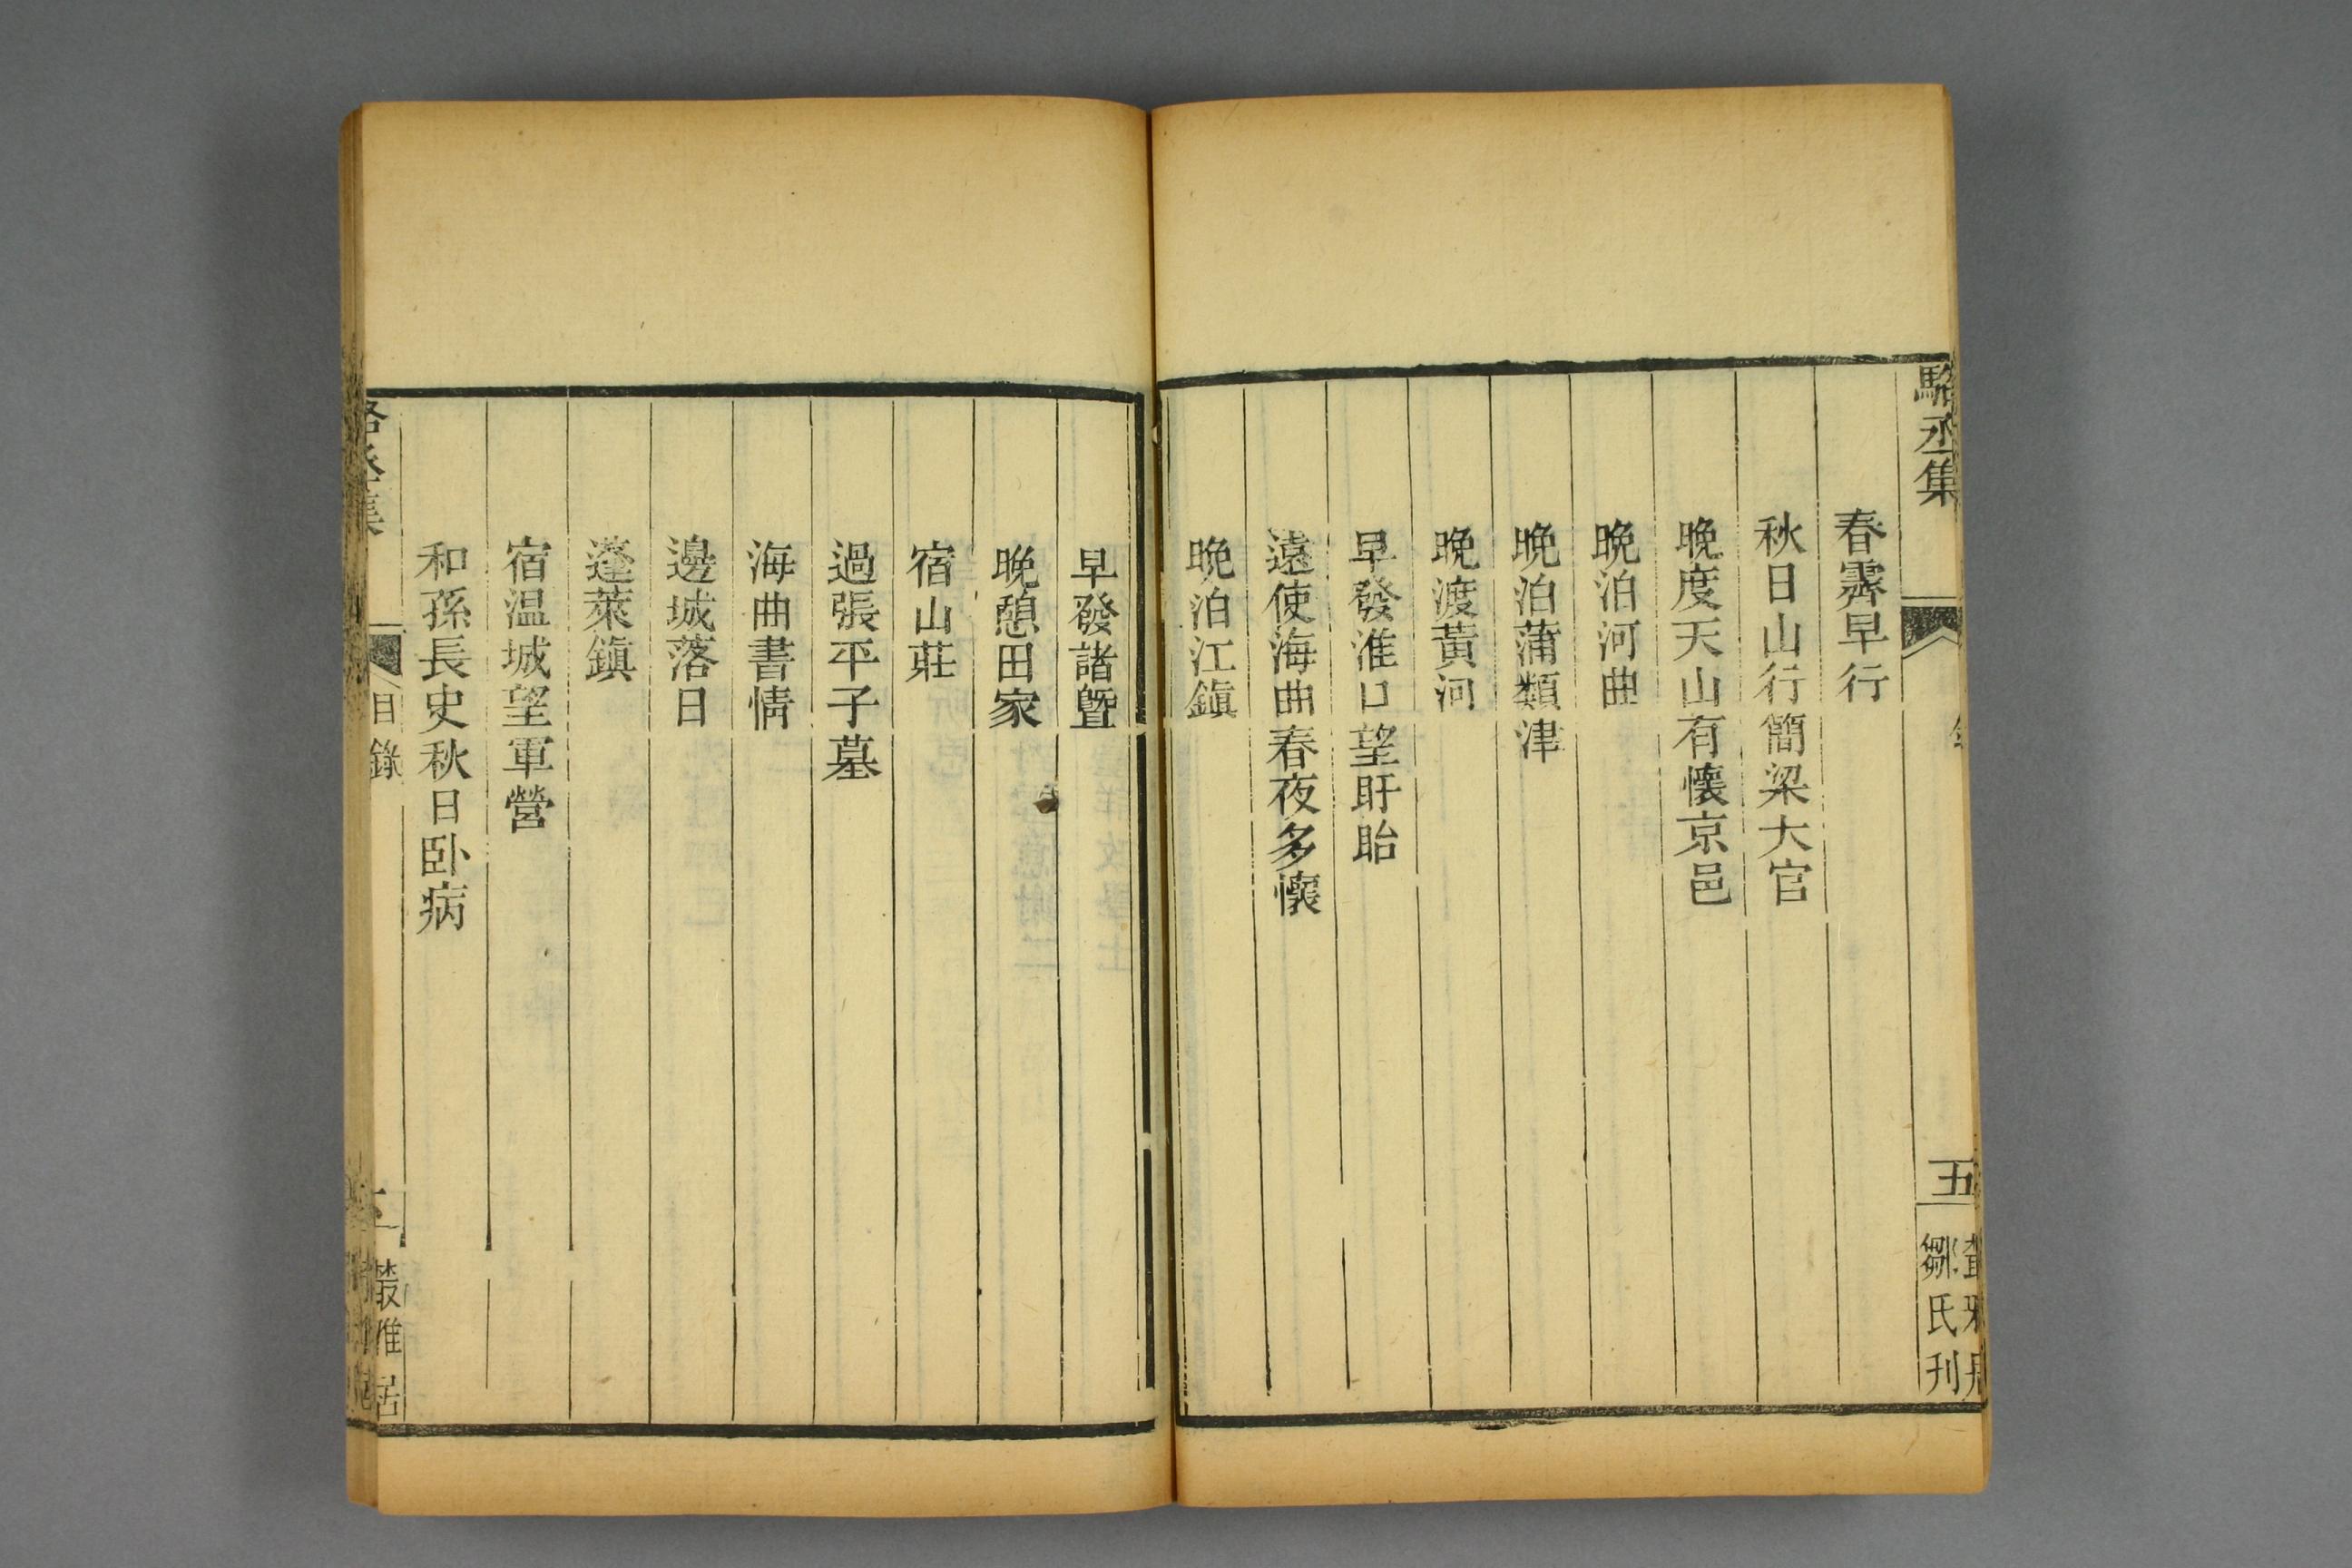 駱丞集
五
鄒氏刊
春霽早行
秋日山行簡梁大官
晚度天山有懷京邑
晚泊河曲
晚泊蒲類津
晚渡黃河
早發淮口望盱眙
遠使海曲春夜多懷
晚泊江鎮
早發諸曁
晚憩田家
宿山莊
過張平子墓
海曲書情
邊城落日
蓬萊鎮
宿温城望軍營
和孫長史秋日卧病
目錄
叢雅居